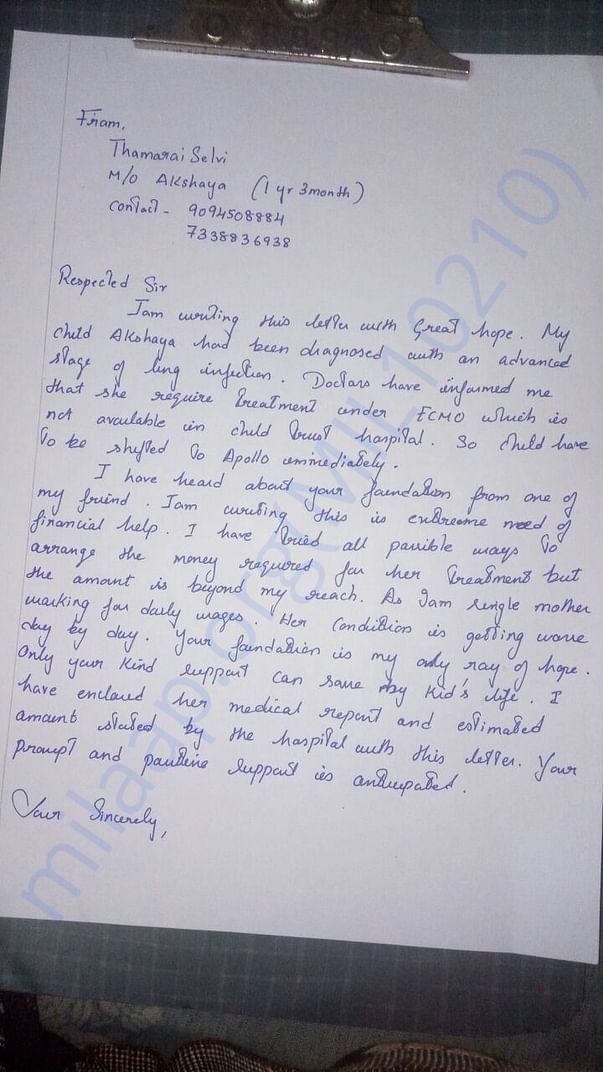 From,
Thamarai Selvi
M/O Akshaya (1 yr 3month)
contact - 9094508884
7338836938
Respected Sir
Iam writing this letter with Great hope. My
child Akshaya had been diagnosed with an advanced
stage of lung infection. Doctors have informed me
that she require treatment under ECMO which is
not available in child trust hospital. So child have
to be shifted to Apollo immediately.
I have heard about your foundation from one of
my friend. Iam writing this is extreome need of
financial help. I have tried all possible ways to
arrange the money required for her treatment but
the amount is beyond my reach. As Iam single mother
working for daily wages. Her condition is getting worse
day by day. Your foundation is my only ray of hope.
Only your kind support can save my kid's life. I
have enclosed her medical report and estimated
amount stated by the hospital with this letter. Your
prompt and positive support is anticipated.
Your Sincerely,
milaap.org(MIL10210)